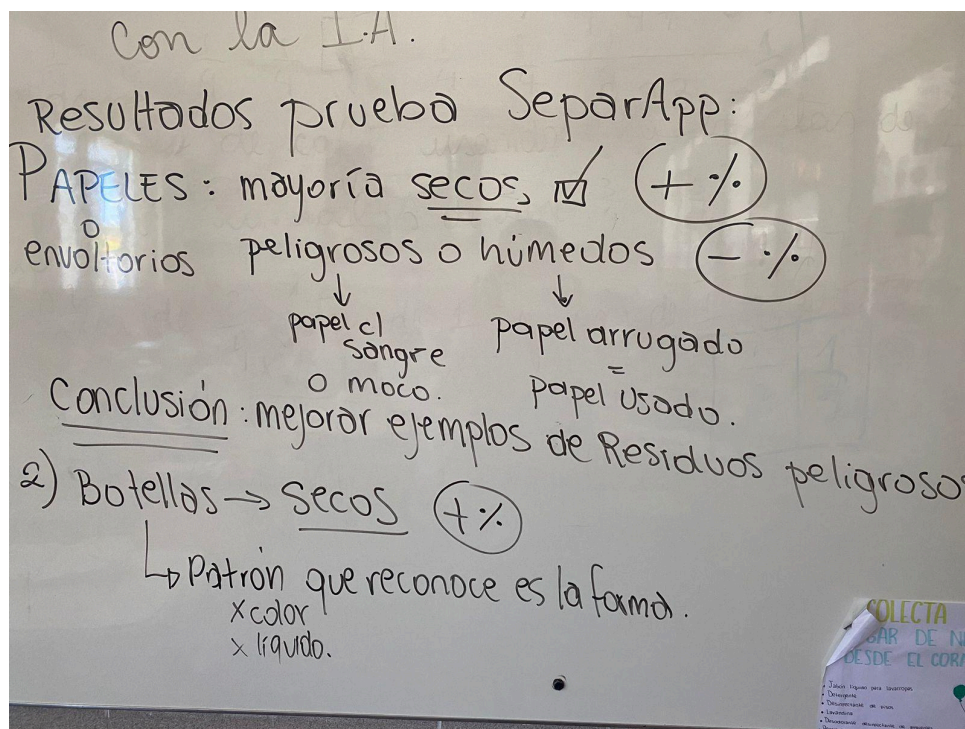 Con la I.A.
Resultados prueba SeparApp:
PAPELES: mayoría secos, ☑ (+%)
o
envoltorios peligrosos o húmedos (-%)
↓ ↓
papel c/ papel arrugado
sangre =
o moco. papel usado.
Conclusión: mejorar ejemplos de Residuos peligroso
2) Botellas → secos (+%)
↳ Patrón que reconoce es la forma.
x color
x líquido.
COLECTA
DE
DESDE EL
• Jabón líquido para lavarropas
• Detergente
• Desinfectante de pisos
• Lavandina